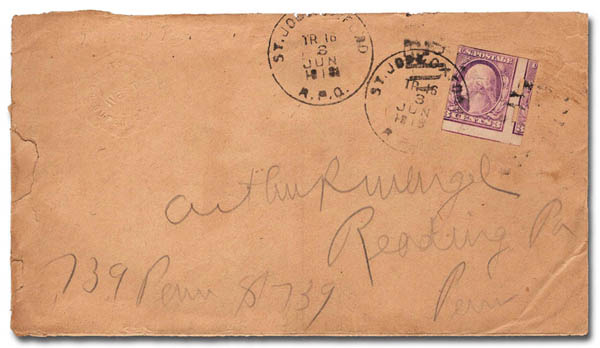 ST. JOS
TR 16
3
JUN
R.P.O.
ST. JOS
TR 16
3
JUN
U.S. POSTAGE
CENTS
Arthur Mengel
Reading Pa
739 Penn St 739
Penn